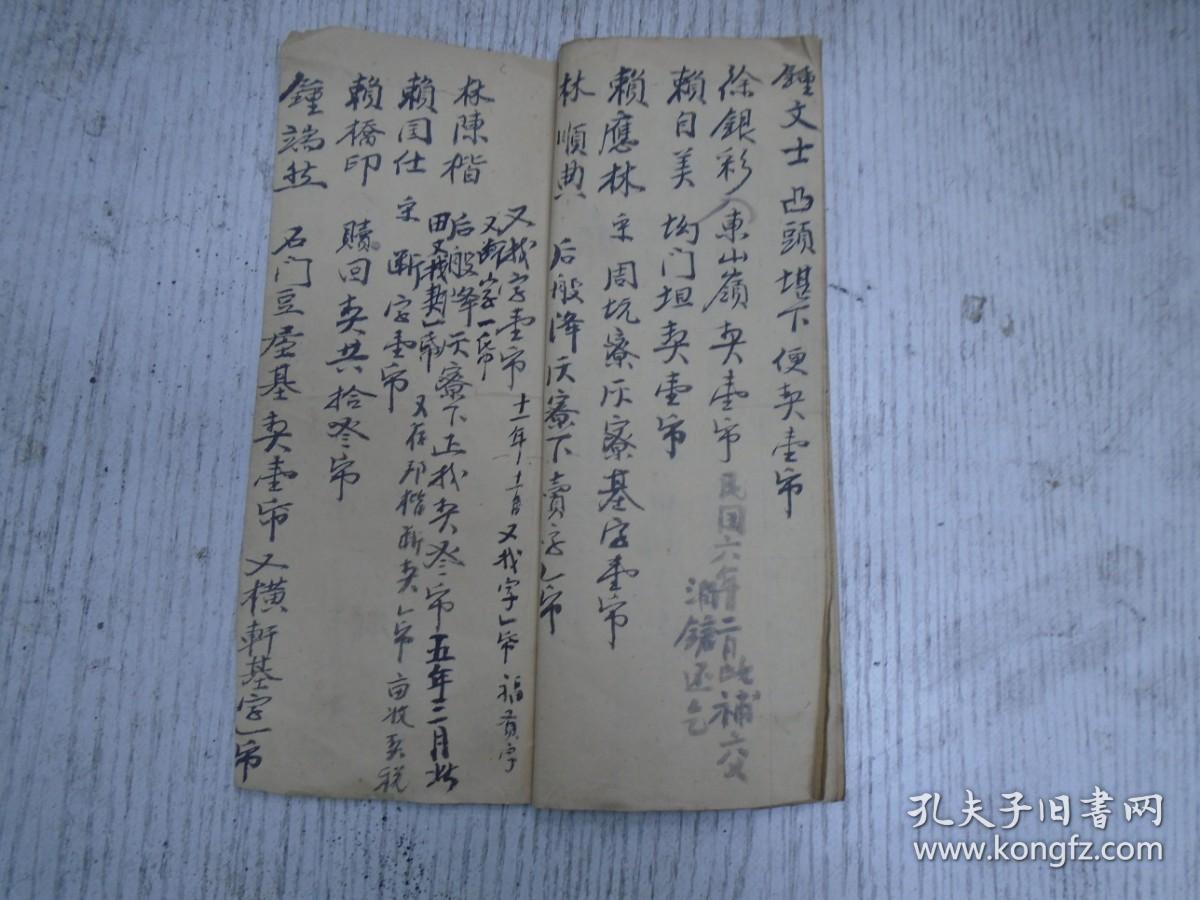 鍾文士 凸頭堪下便契壹帋
徐銀彩 東山嶺契壹帋 民国六年二月此補交
清還乞
賴自美 坳门坦契壹帋
賴應林 宗周坑寮仄寮基字壹帋
林順典 后般洚仄寮下賣字乚帋
又找字壹帋 十一年十一月又找字乚帋 福貢字
又断字一帋
林陳楷 后般洚仄寮下正找契叁帋 五年二月
田又找契一帋
賴囯仕 宗断字壹帋 又存邦楷断契乚帋 亩收契税
賴橋印 贖回契共拾叁帋
鍾端 石门豆屋基契壹帋 又横軒基字乚帋
孔夫子旧书网
www.kongfz.com